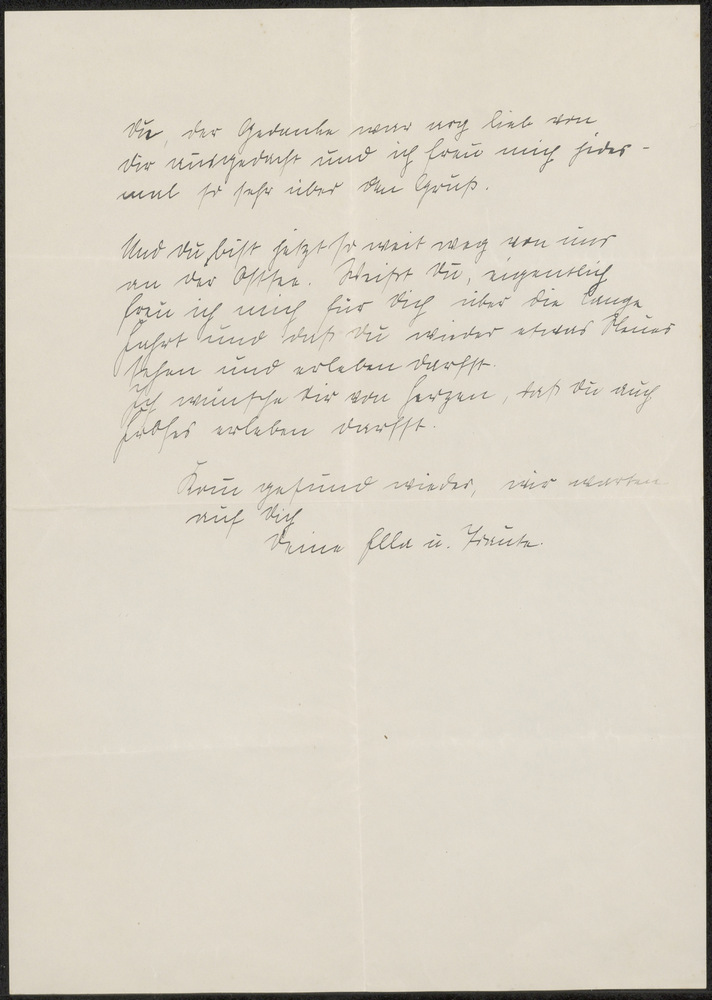 Du, der Gedanke war arg lieb von
Dir ausgedacht und ich freu mich jedes-
mal so sehr über den Gruß.
Und Du bist jetzt so weit weg von uns
an der Ostsee. Weißt Du, eigentlich
freu ich mich für Dich über die lange
Fahrt und daß Du wieder etwas Neues
sehen und erleben darfst.
Ich wünsche Dir von Herzen, daß Du auch
Frohes erleben darfst.
Kom gesund wieder, wir warten
auf Dich
Deine Ella u. Traute.